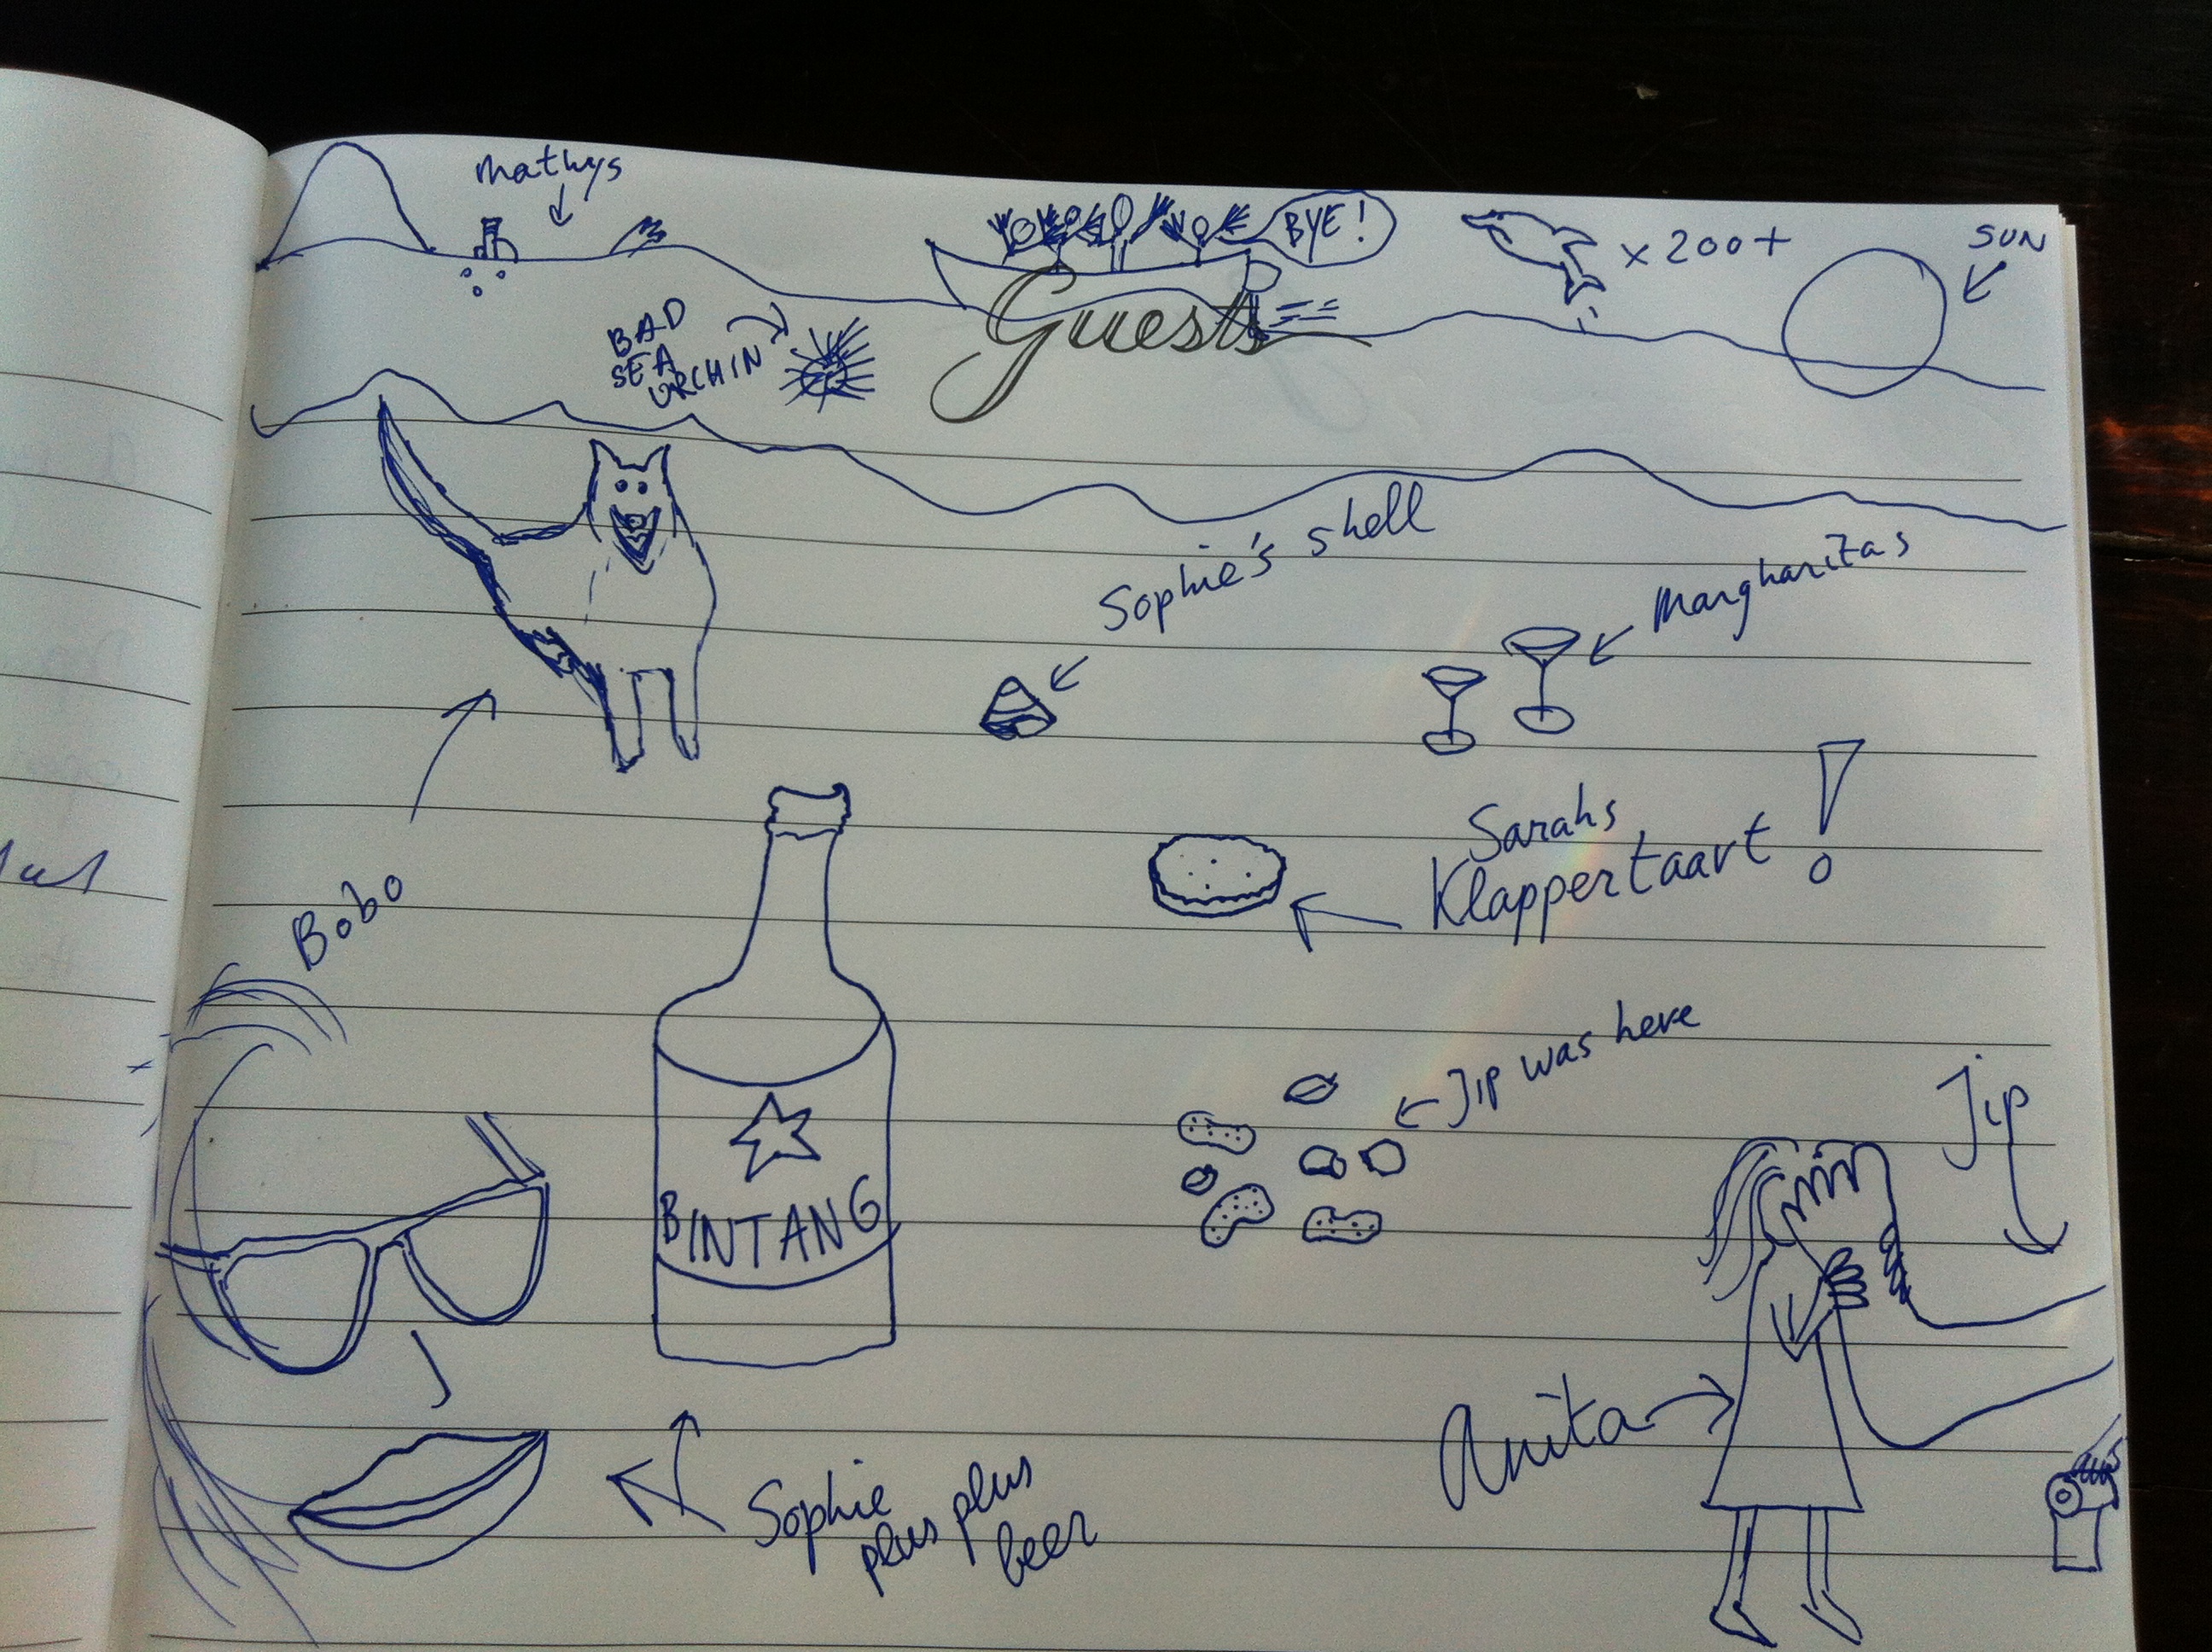 mathys
BYE!
x 200+
SUN
BAD
SEA
URCHIN
Guests
Sophie's shell
Margharitas
Sarahs
Klappertaart!
Bobo
Jip was here
Jip
BINTANG
Anita
Sophie
plus plus
beer